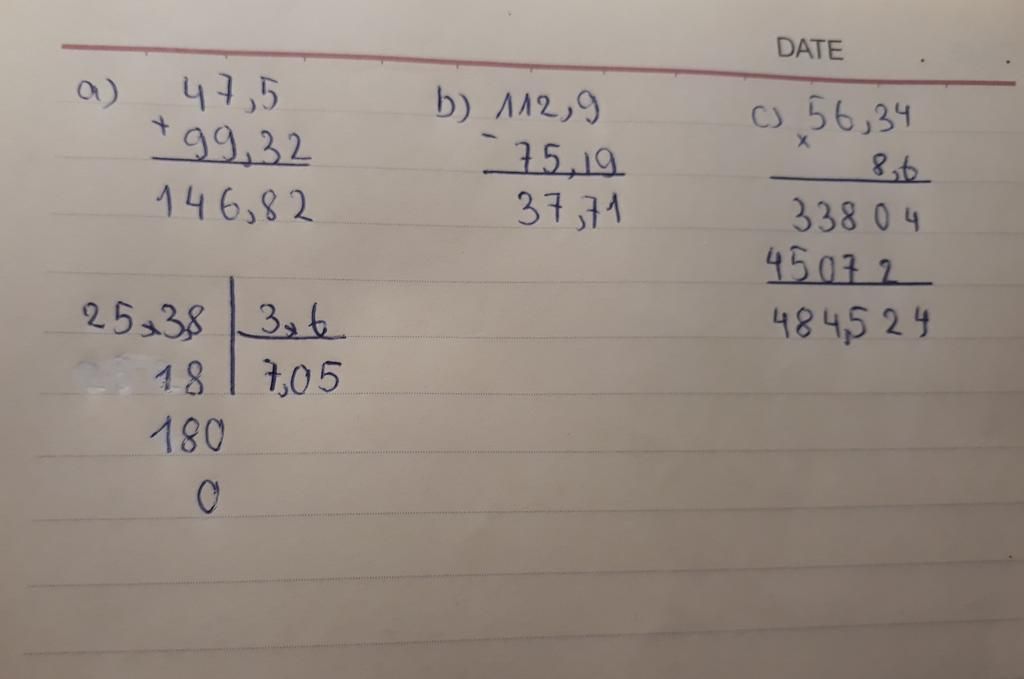 DATE
a) 47,5
+ 99,32
146,82
b) 112,9
- 75,19
37,71
c) 56,34
x 8,6
33804
45072
484,524
25,3,8 | 3,6
18 | 7,05
180
0